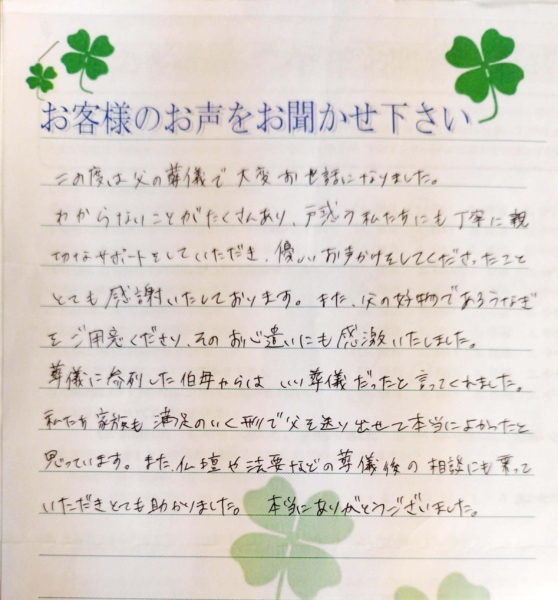 お客様のお声をお聞かせ下さい
この度は父の葬儀で大変お世話になりました。
わからないことがたくさんあり、戸惑う私たちにも丁寧に親
切なサポートをしていただき、優しいお声かけをしてくださったこと
とても感謝いたしております。また、父の好物であるうなぎ
をご用意くださり、そのお心遣いにも感激いたしました。
葬儀に参列した伯母からは いい葬儀だったと言ってくれました。
私たち家族も 満足のいく形で父を送り出せて本当によかったと
思っています。また、仏壇や法要などの葬儀後の相談にも乗って
いただきとても助かりました。 本当にありがとうございました。